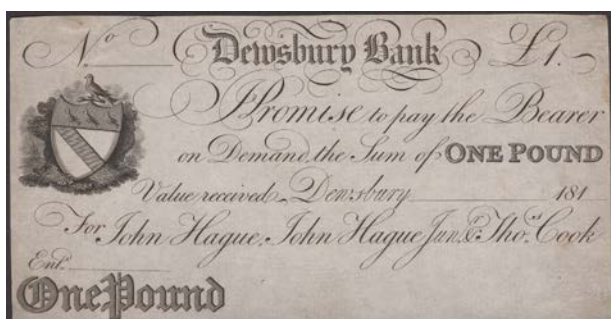 No Dewsbury Bank £1.-
Promise to pay the Bearer
on Demand the Sum of ONE POUND
Value received Dewsbury 181
For John Hague, John Hague Junr. & Thos. Cook
Entd.
One Pound